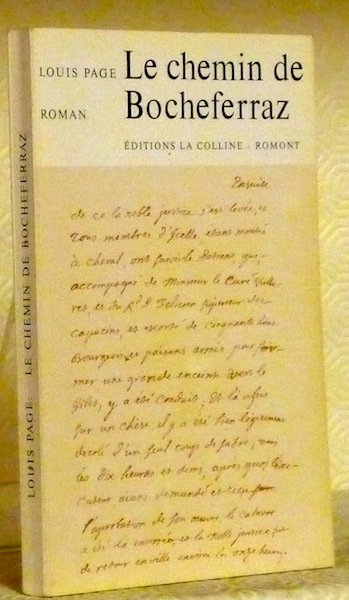 LOUIS PAGE
ROMAN
Le chemin de
Bocheferraz
ÉDITIONS LA COLLINE · ROMONT
LOUIS PAGE: LE CHEMIN DE BOCHEFERRAZ
Ensuite
de ce la noble justice s'est levée, et
Tous membres d'Icelle, etans montés
à cheval, ont suivi le Patient, que
accompagné de Monsieur le Curé
res, et du Rd P. Felicien superieur des
capucins, et escorté de cinquante
Bourgeois et païsans armés pour for-
mer une grande enceinte vers le
Gibet, y a été conduit, Et là assis
sur un chèse, il y a été bien légèrement
decolé d'un seul coup de sabre, vers
les dix heures et demi, après quoy l'exe-
cuteur aïans demandé et reçu
l'aprobation de son œuvre, le cadavre
a été là enterré, et la Noble justice
de retour en ville environ les onze heures.